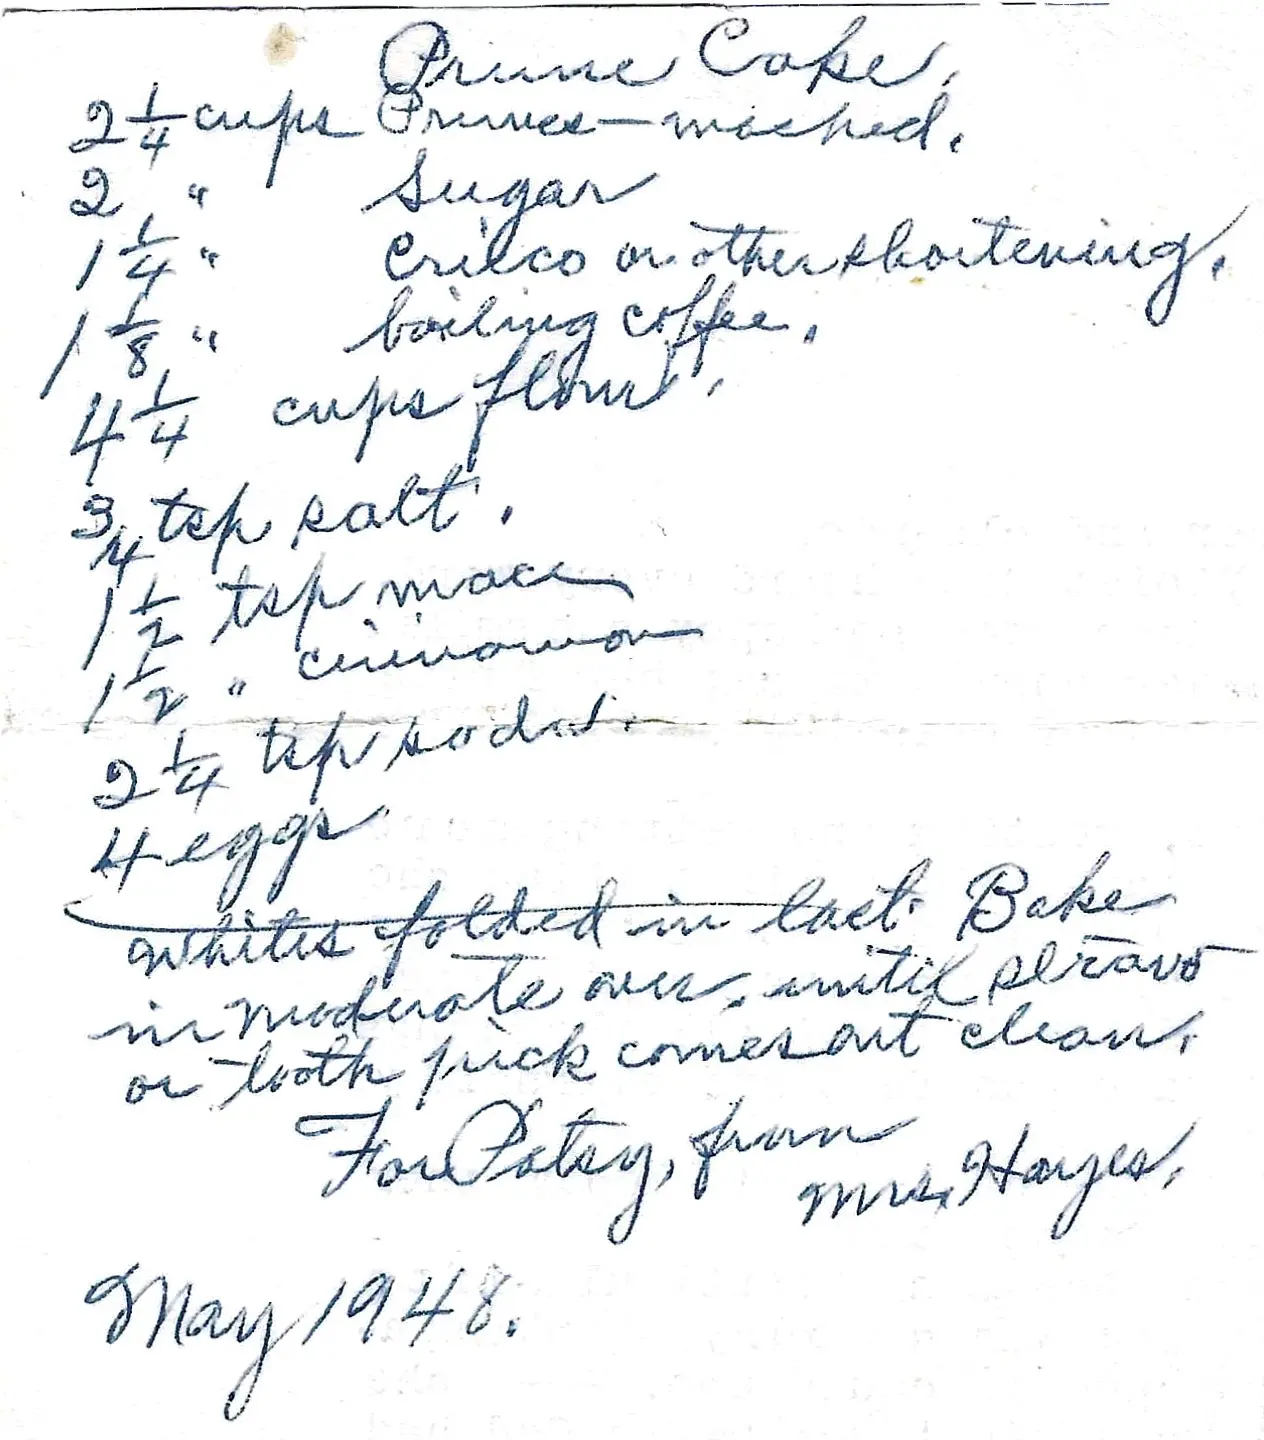 Prune Cake.
2 1/4 cups Prunes — mashed.
2 " Sugar
1 1/4 " Crisco or other shortening.
1 1/8 " boiling coffee.
4 1/4 cups flour.
3/4 tsp salt.
1 1/2 tsp mace
1 1/2 " cinnamon
2 1/4 tsp soda.
4 eggs
whites folded in last. Bake
in moderate oven, until straw
or tooth pick comes out clean.
For Patsy, from
Mrs. Hayes.
May 1948.